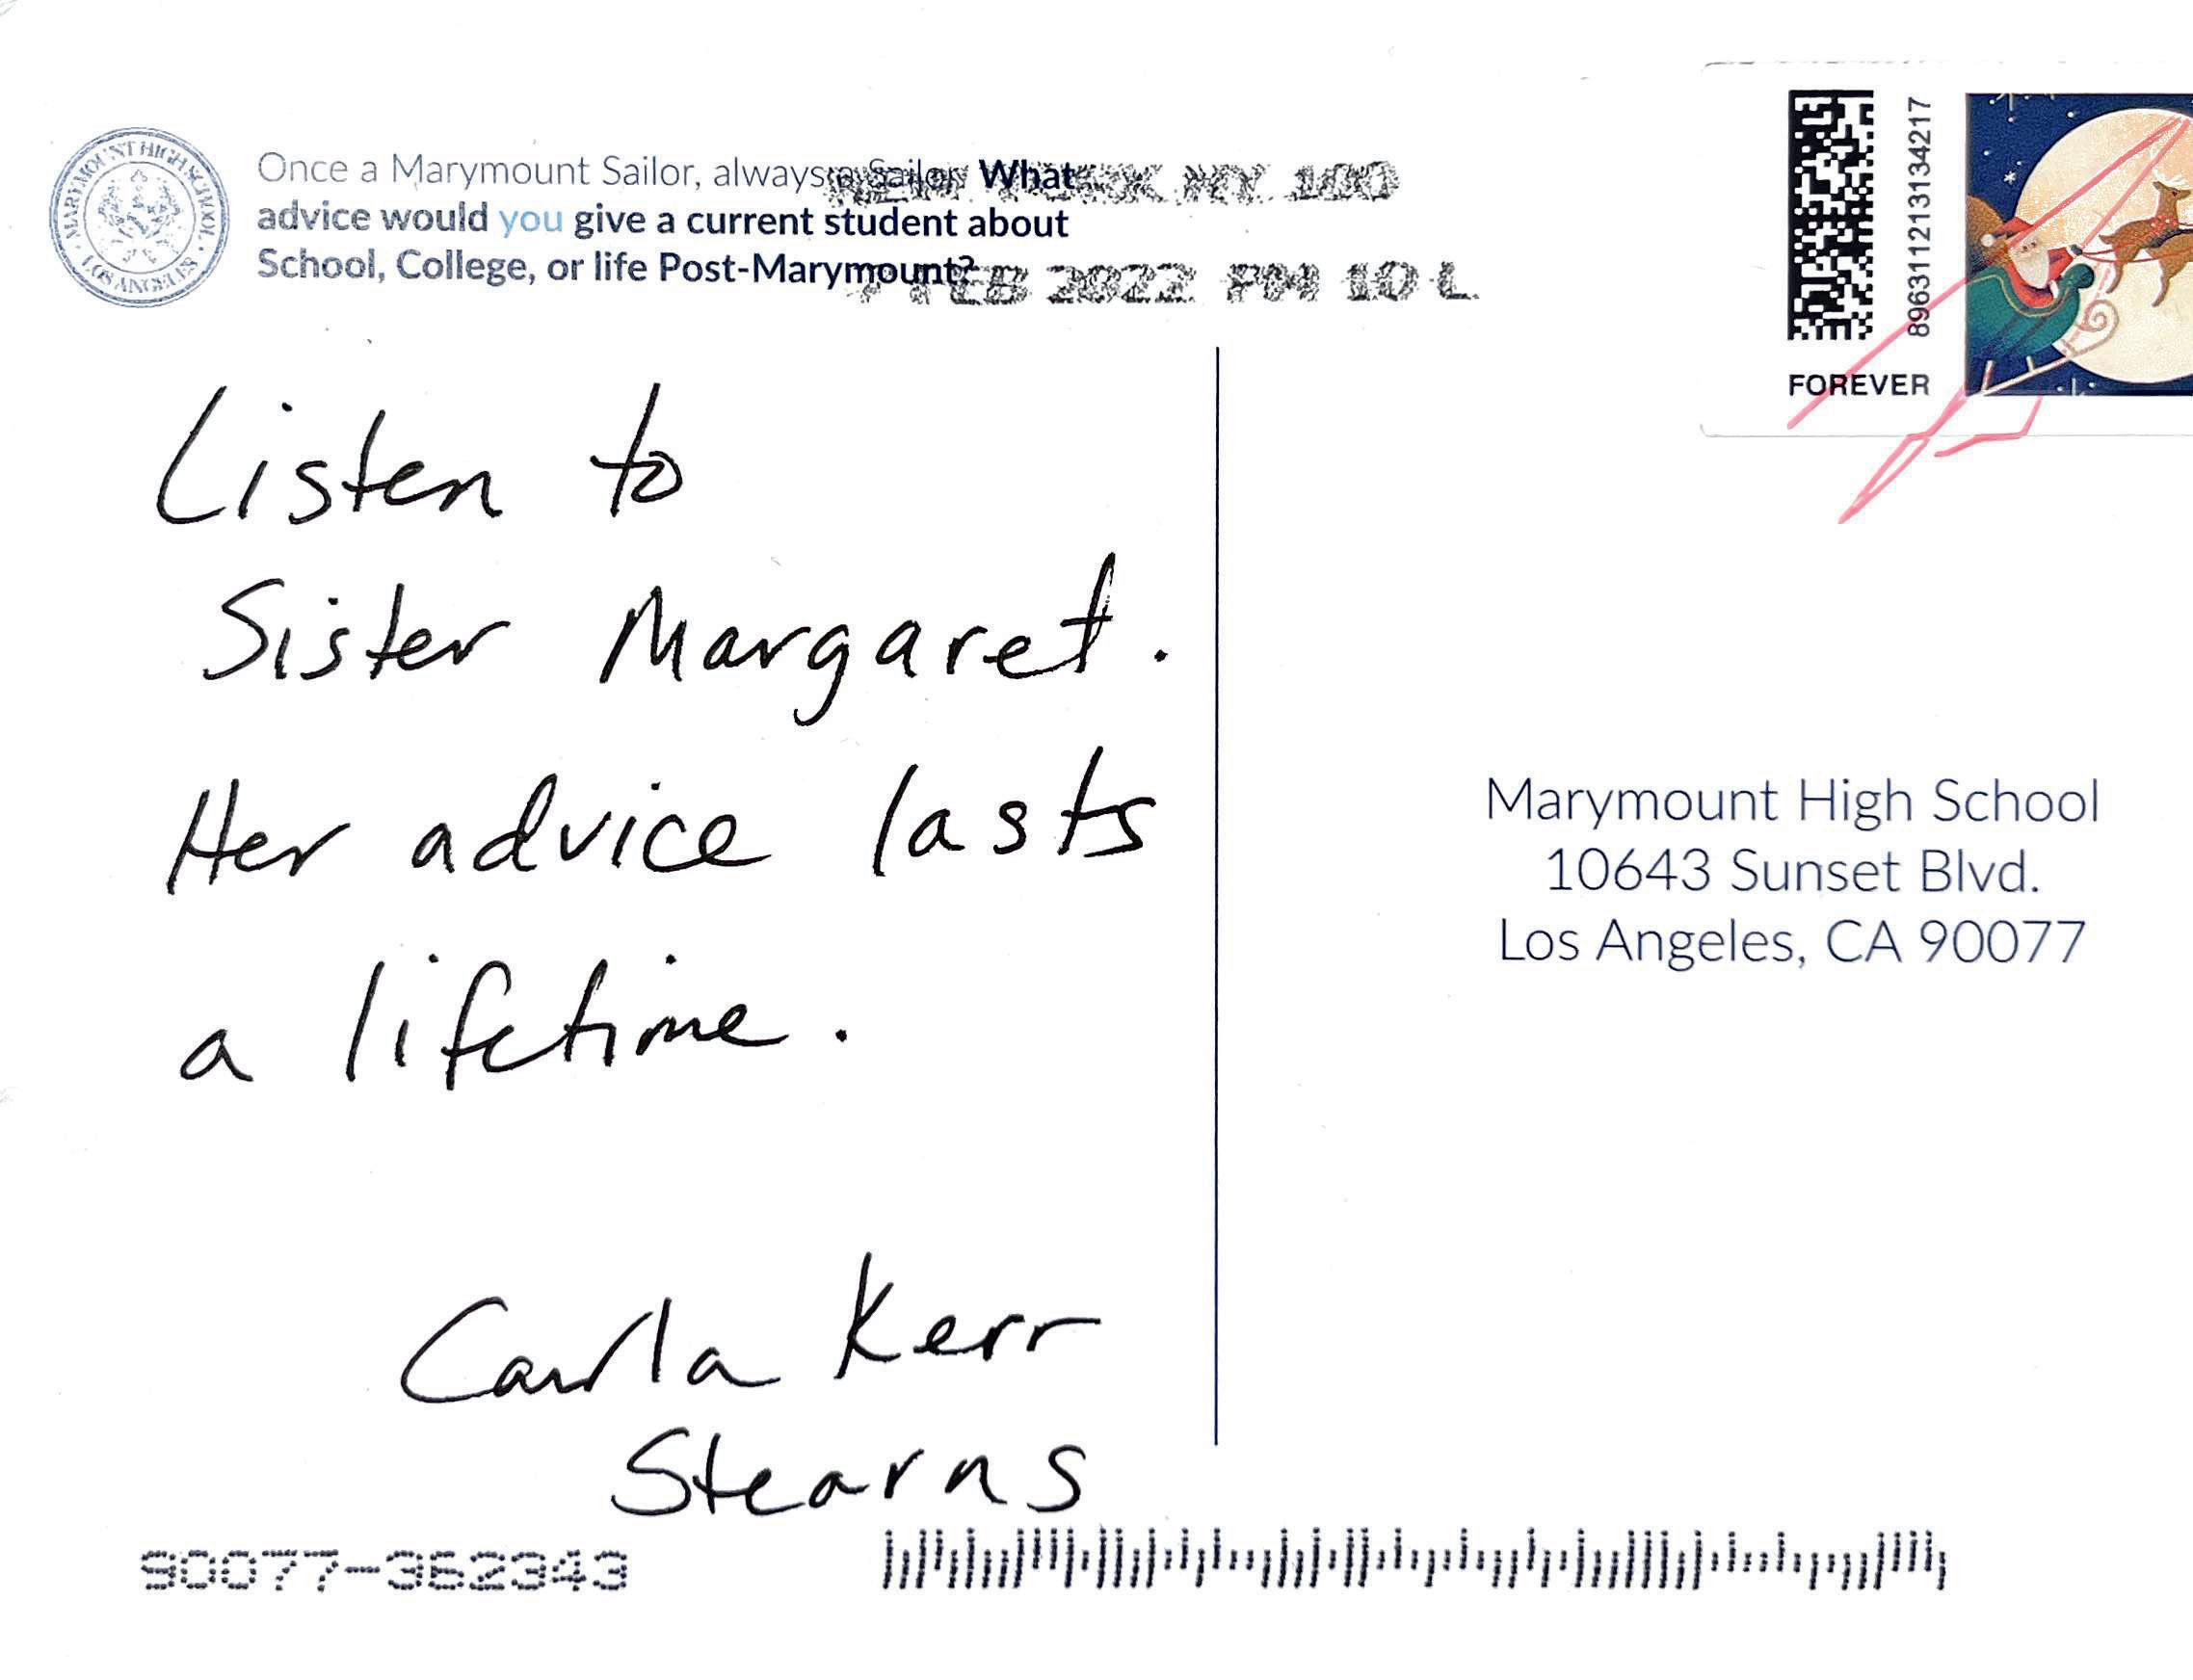 MARYMOUNT HIGH SCHOOL · LOS ANGELES ·
Once a Marymount Sailor, always a Sailor. What
advice would you give a current student about
School, College, or life Post-Marymount?
NY 100
FEB 2022 PM 10 L
8963112131134217
FOREVER
Listen to
Sister Margaret.
Her advice lasts
a lifetime.
Carla Kerr
Stearns
Marymount High School
10643 Sunset Blvd.
Los Angeles, CA 90077
90077-362343